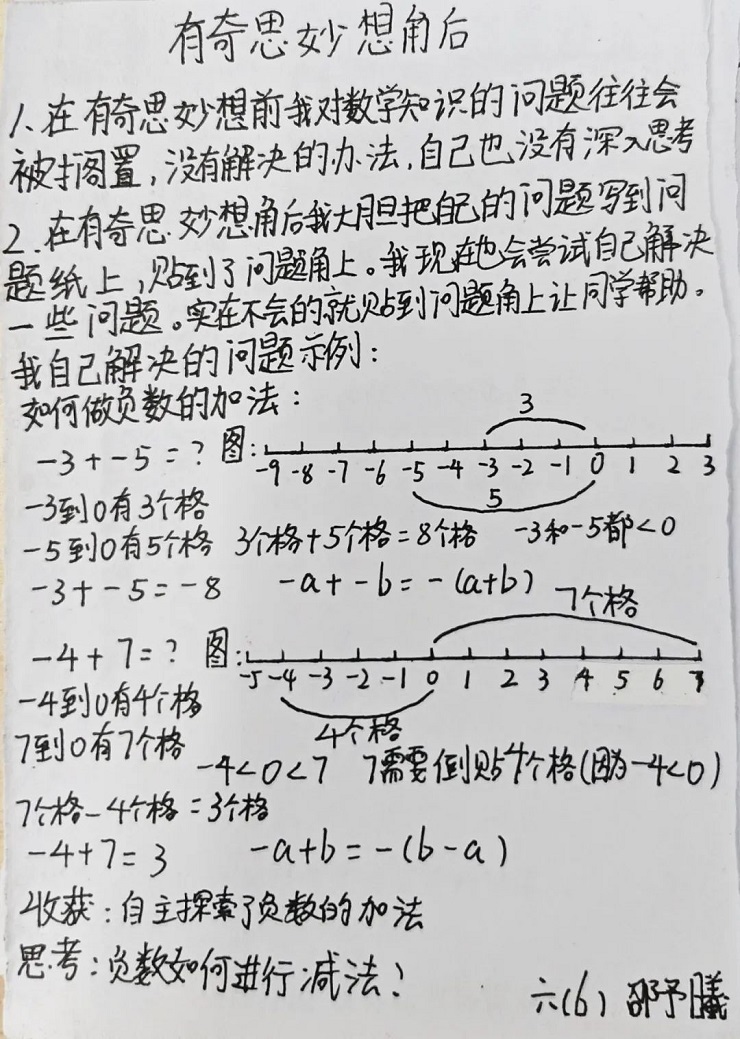 有奇思妙想角后
1、在有奇思妙想前我对数学知识的问题往往会
被搁置，没有解决的办法，自己也没有深入思考
2、在有奇思妙想角后我大胆把自己的问题写到问
题纸上，贴到了问题角上。我现在也会尝试自己解决
一些问题。实在不会的就贴到问题角上让同学帮助。
我自己解决的问题示例：
如何做负数的加法：
3
-3+-5=? 图:
-9 -8 -7 -6 -5 -4 -3 -2 -1 0 1 2 3
5
-3到0有3个格
-5到0有5个格 3个格+5个格=8个格 -3和-5都<0
-3+-5=-8 -a+-b=-(a+b)
7个格
-4+7=? 图:
-5 -4 -3 -2 -1 0 1 2 3 4 5 6 7
-4到0有4个格
4个格
7到0有7个格
-4<0<7 7需要倒贴4个格(因为-4<0)
7个格-4个格=3个格
-4+7=3 -a+b=-(b-a)
收获：自主探索了负数的加法
思考：负数如何进行减法？
六(6) 邵予曦